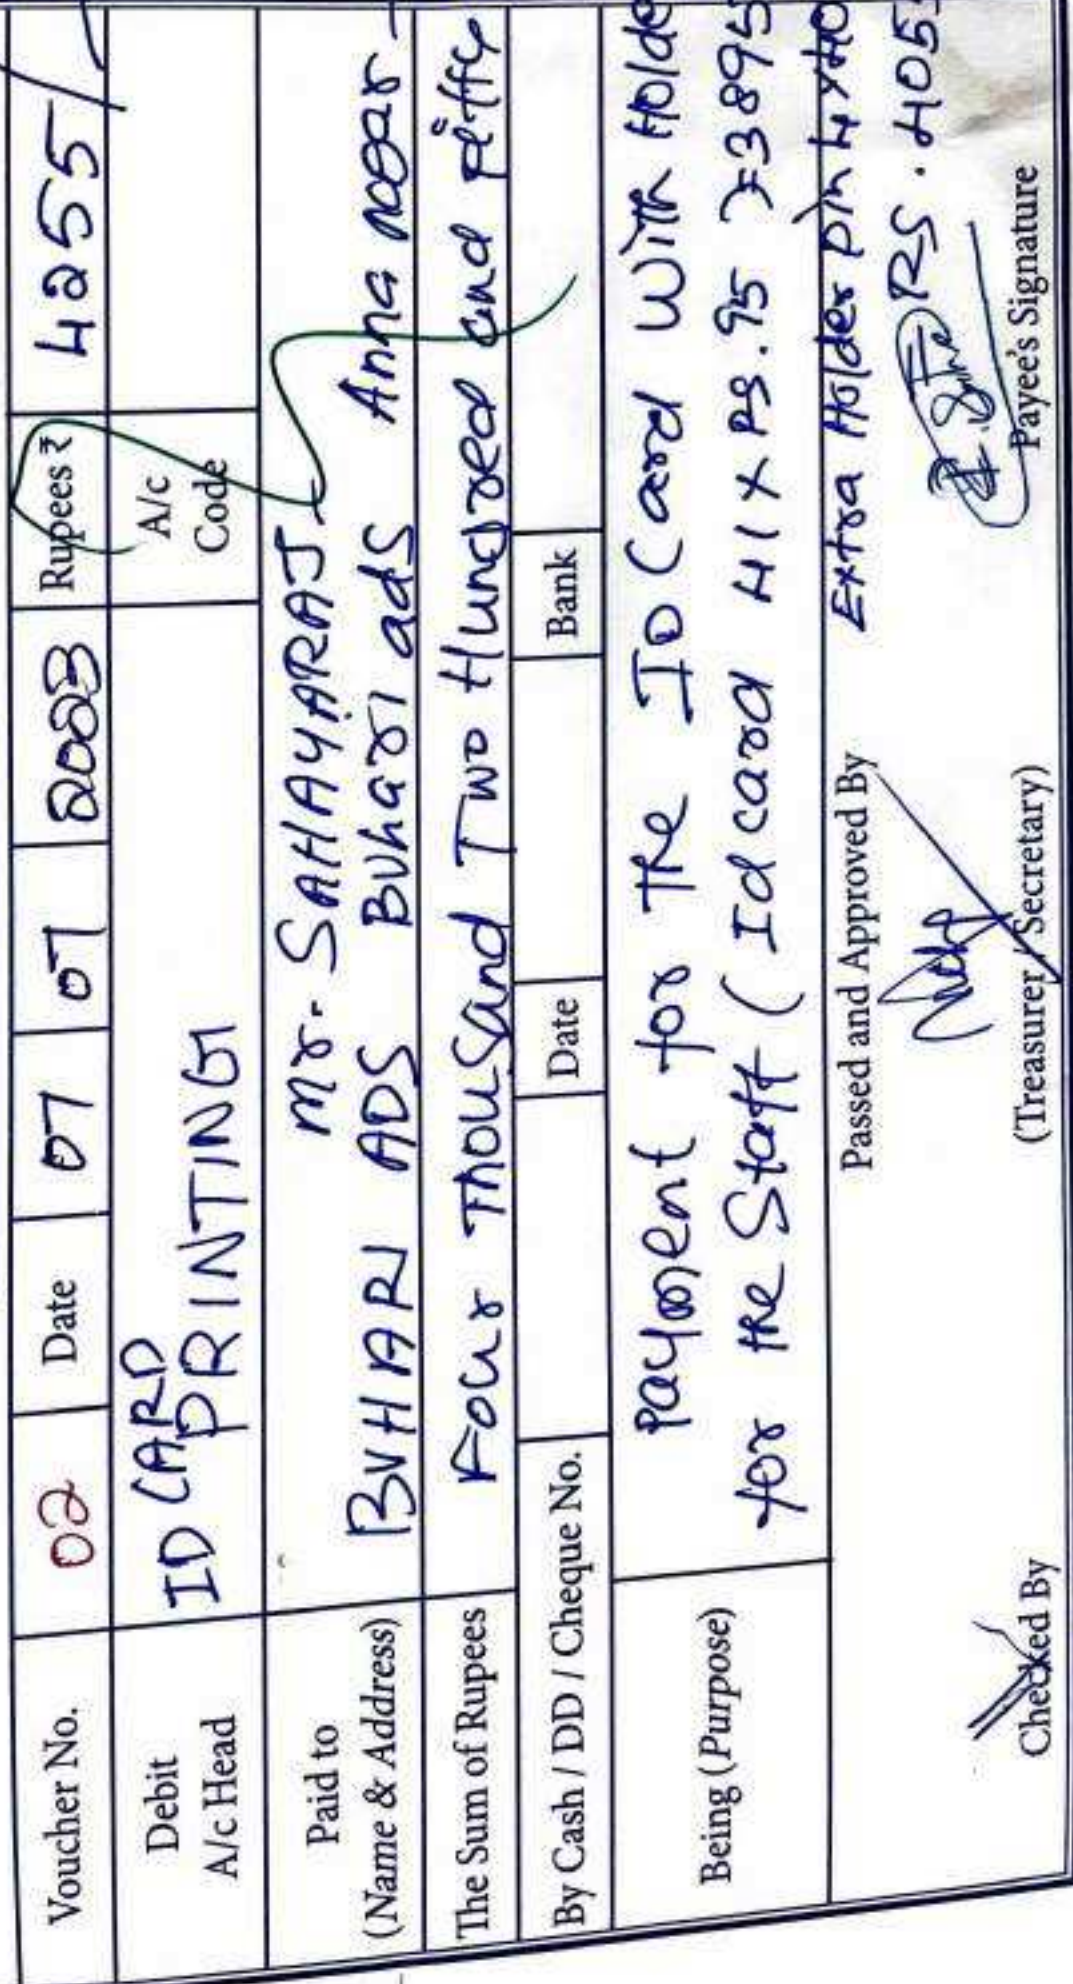 Voucher No. 02 Date 07 07 2023 Rupees ₹ 4255/-
Debit A/c Head ID CARD PRINTING A/c Code
Paid to (Name & Address) Mr. SAHAYARAJ.
BUHARI ADS Buhari ads Anna nagar
The Sum of Rupees Four Thousand Two Hundred and fifty
By Cash / DD / Cheque No. Date Bank
Being (Purpose) Payment for the ID Card With Holde
for the Staff (Id card 41 x RS.95 =3895
Extra Holder Pin 4x40
RS. 405
Passed and Approved By
Checked By (Treasurer / Secretary) Payee's Signature